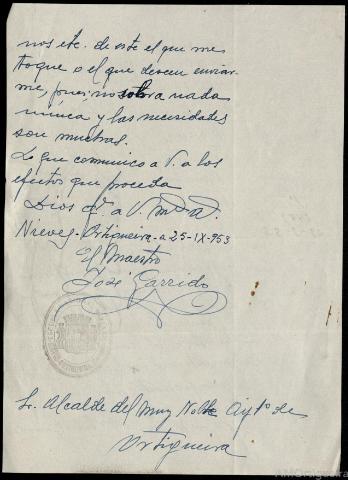 nos etc. de este el que me
toque o el que deseen enviar-
me, pues, no sobra nada
nunca y las necesidades
son muchas.
Lo que comunico a V. a los
efectos que proceda
Dios g. a V. m. a.
Nieves-Ortigueira-a 25-IX-953
El Maestro
José Garrido
Sr. Alcalde del Muy Noble Aytº de
Ortigueira
AMOrtigueira